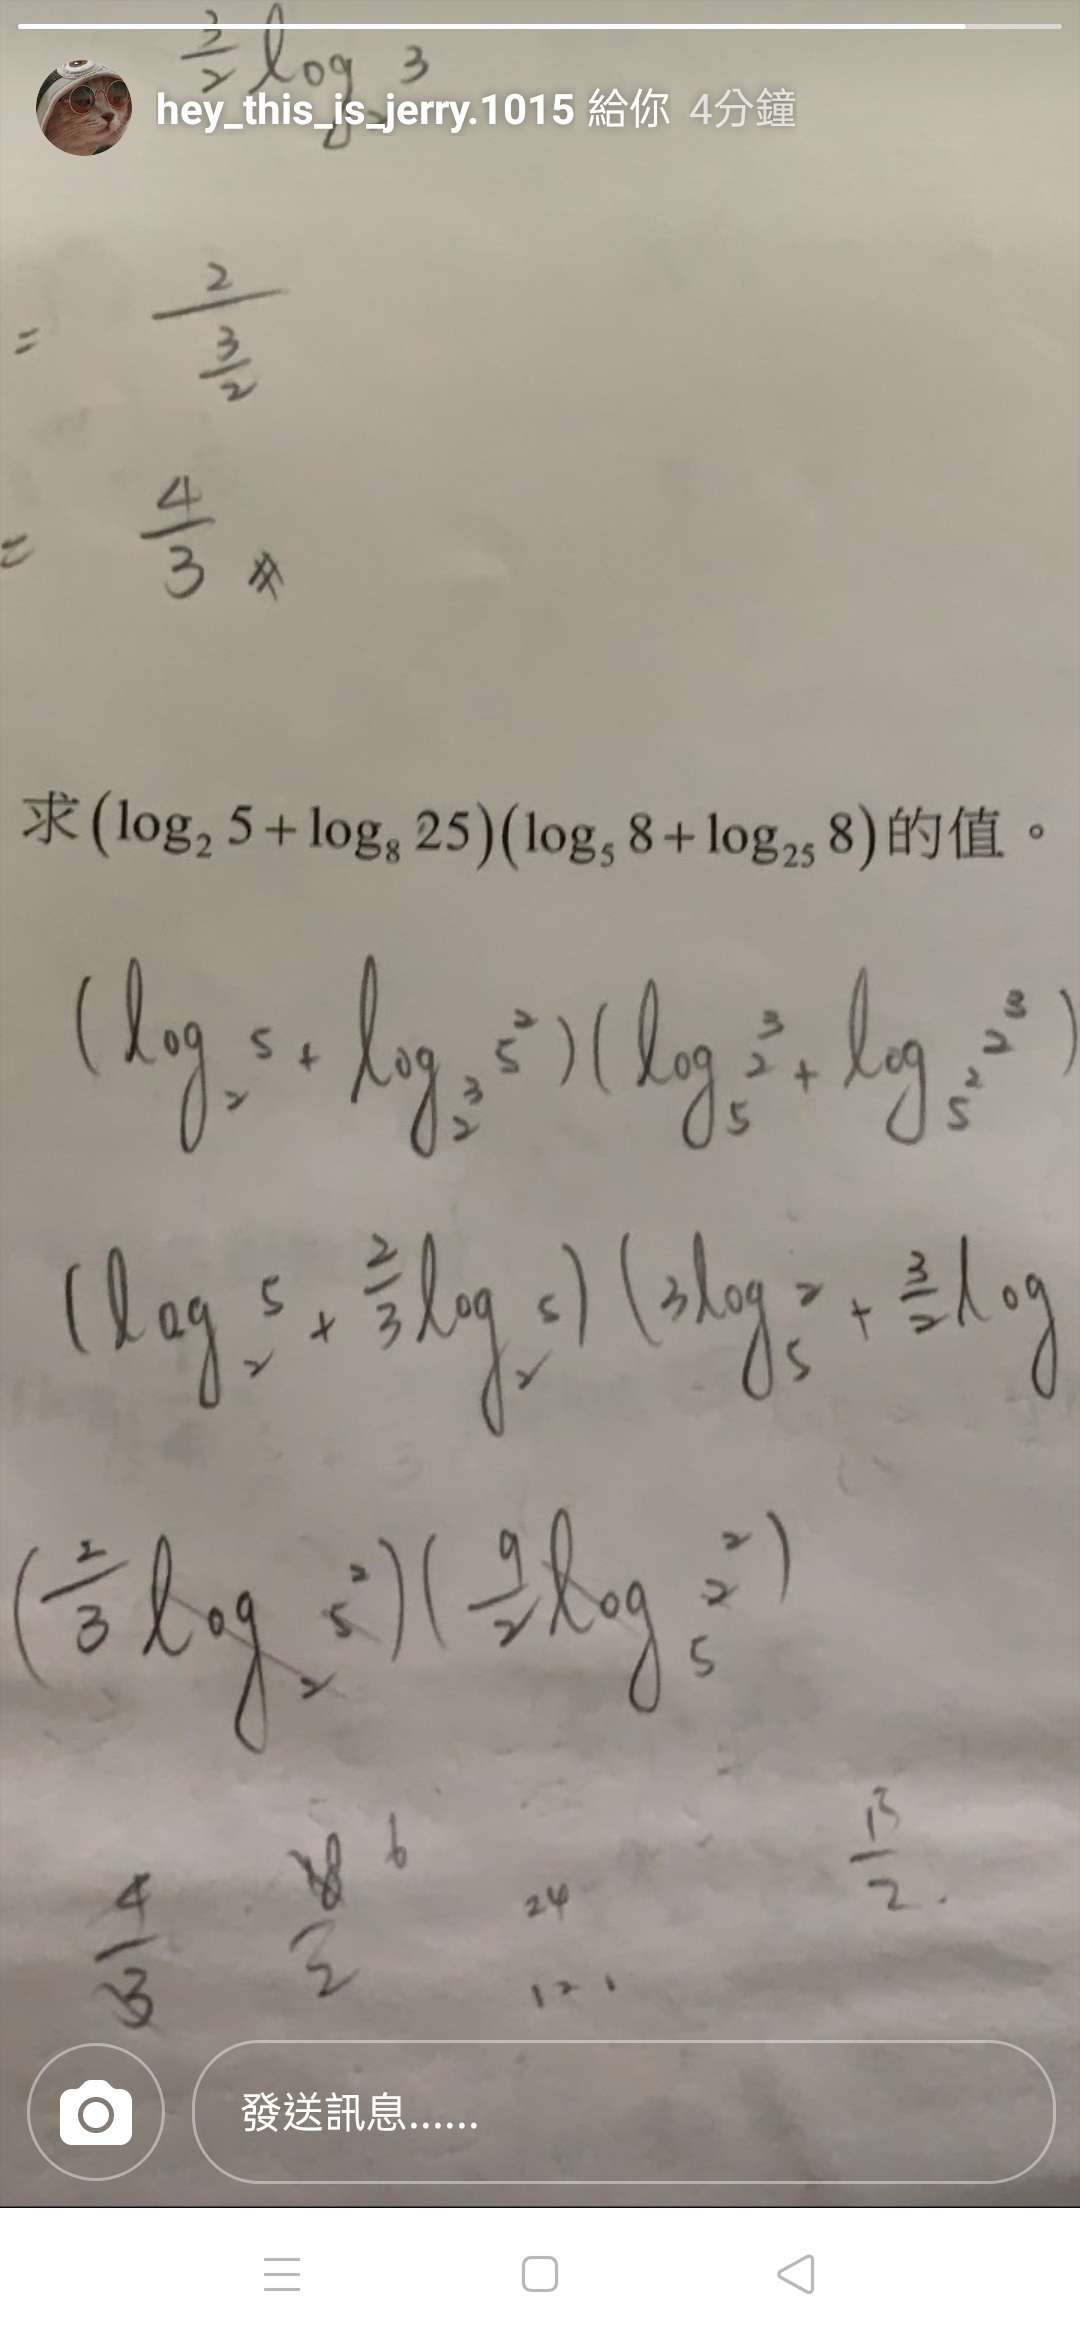 3/2 log 3
hey_this_is_jerry.1015 給你 4分鐘
= 2/(3/2)
= 4/3 ※
求(log₂ 5+log₈ 25)(log₅ 8+log₂₅ 8)的值。
(log₂ 5 + log_2³ 5²)(log₅ 2³ + log_5² 2³)
(log₂ 5 + 2/3 log₂ 5)(3log₅ 2 + 3/2 log
(2/3 log₂ 5²)(9/2 log₅ 2²)
13/2.
4/3 6 24
12
發送訊息......